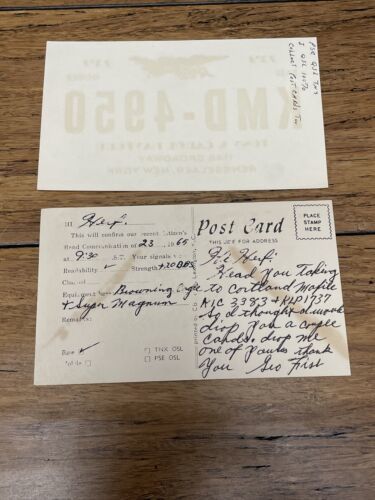 PSE QSL TNX
I QSL 100%
Collect Post Cards Too
KMD-4950
BROADWAY
RENSSELAER, NEW YORK
HI Herf:
This will confirm our recent Citizen's
Band Communication of 23 1965
at 9:30 S.T. Your signals
Readability ✓ Strength +20 DBS
Equipment here Browning Eagle
+ Super Magnum
Remarks:
Base ✓
Mobile □
□ TNX QSL
□ PSE QSL
Post Card
THIS SIDE FOR ADDRESS
PLACE
STAMP
HERE
Hi Herf:
Heard you talking
to Cortland Mobile
KLP1737
So, I thought I would
drop you a couple
cards, drop me
one of yours thank
You Geo First